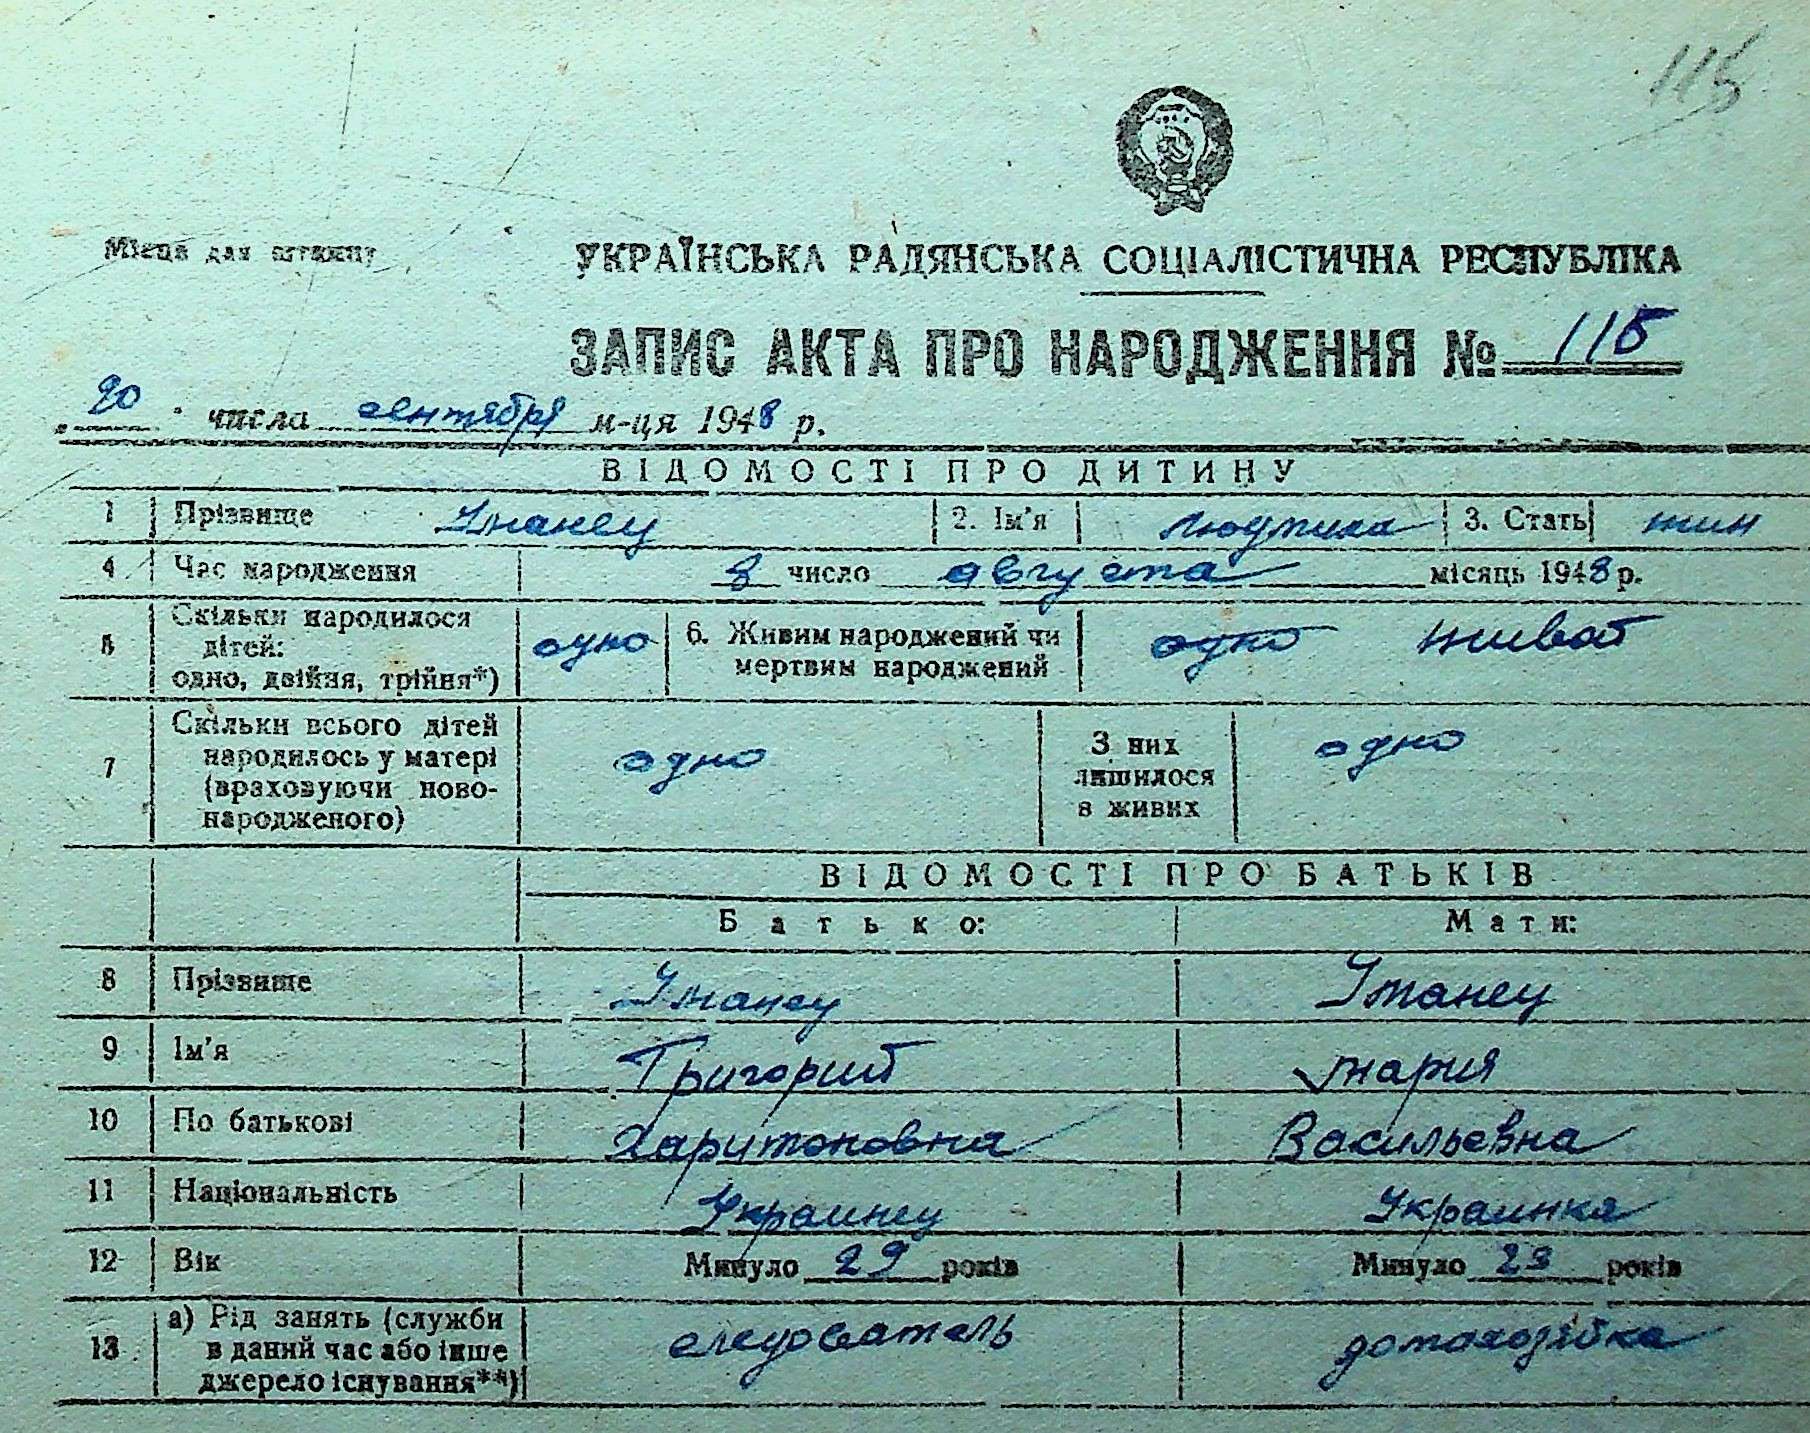 115
Місце для штампу
УКРАЇНСЬКА РАДЯНСЬКА СОЦІАЛІСТИЧНА РЕСПУБЛІКА
ЗАПИС АКТА ПРО НАРОДЖЕННЯ № 115
„20" числа сентября м-ця 1948 р.
ВІДОМОСТІ ПРО ДИТИНУ
1 Прізвище Уманец 2. Ім'я Людмила 3. Стать жин
4 Час народження 8 число августа місяць 1948 р.
5 Скільки народилося дітей: одно, двійня, трійня*) одно 6. Живим народжений чи мертвим народжений одно живой
7 Скільки всього дітей народилось у матері (враховуючи ново-народженого) одно З них лишилося в живих одно
ВІДОМОСТІ ПРО БАТЬКІВ
Батько: Мати:
8 Прізвище Уманец Уманец
9 Ім'я Григорий Мария
10 По батькові Харитоновна Васильевна
11 Національність Украинец Украинка
12 Вік Минуло 29 років Минуло 23 років
13 а) Рід занять (служби в даний час або інше джерело існування**) следователь домохозяйка